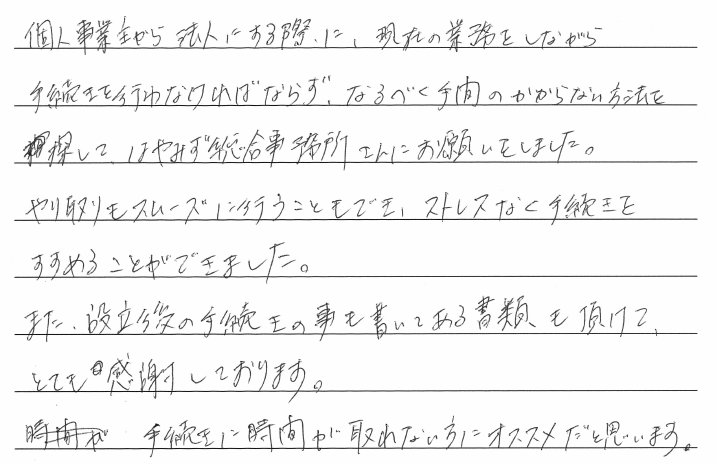 個人事業主から法人にする際に、現在の業務をしながら
手続きを行わなければならず、なるべく手間のかからない方法を
探して、はやみず総合事務所さんにお願いをしました。
やり取りもスムーズに行うこともでき、ストレスなく手続きを
すすめることができました。
また、設立後の手続きの事も書いてある書類も頂けて、
とても感謝しております。
時間が 手続きに時間が取れない方にオススメだと思います。